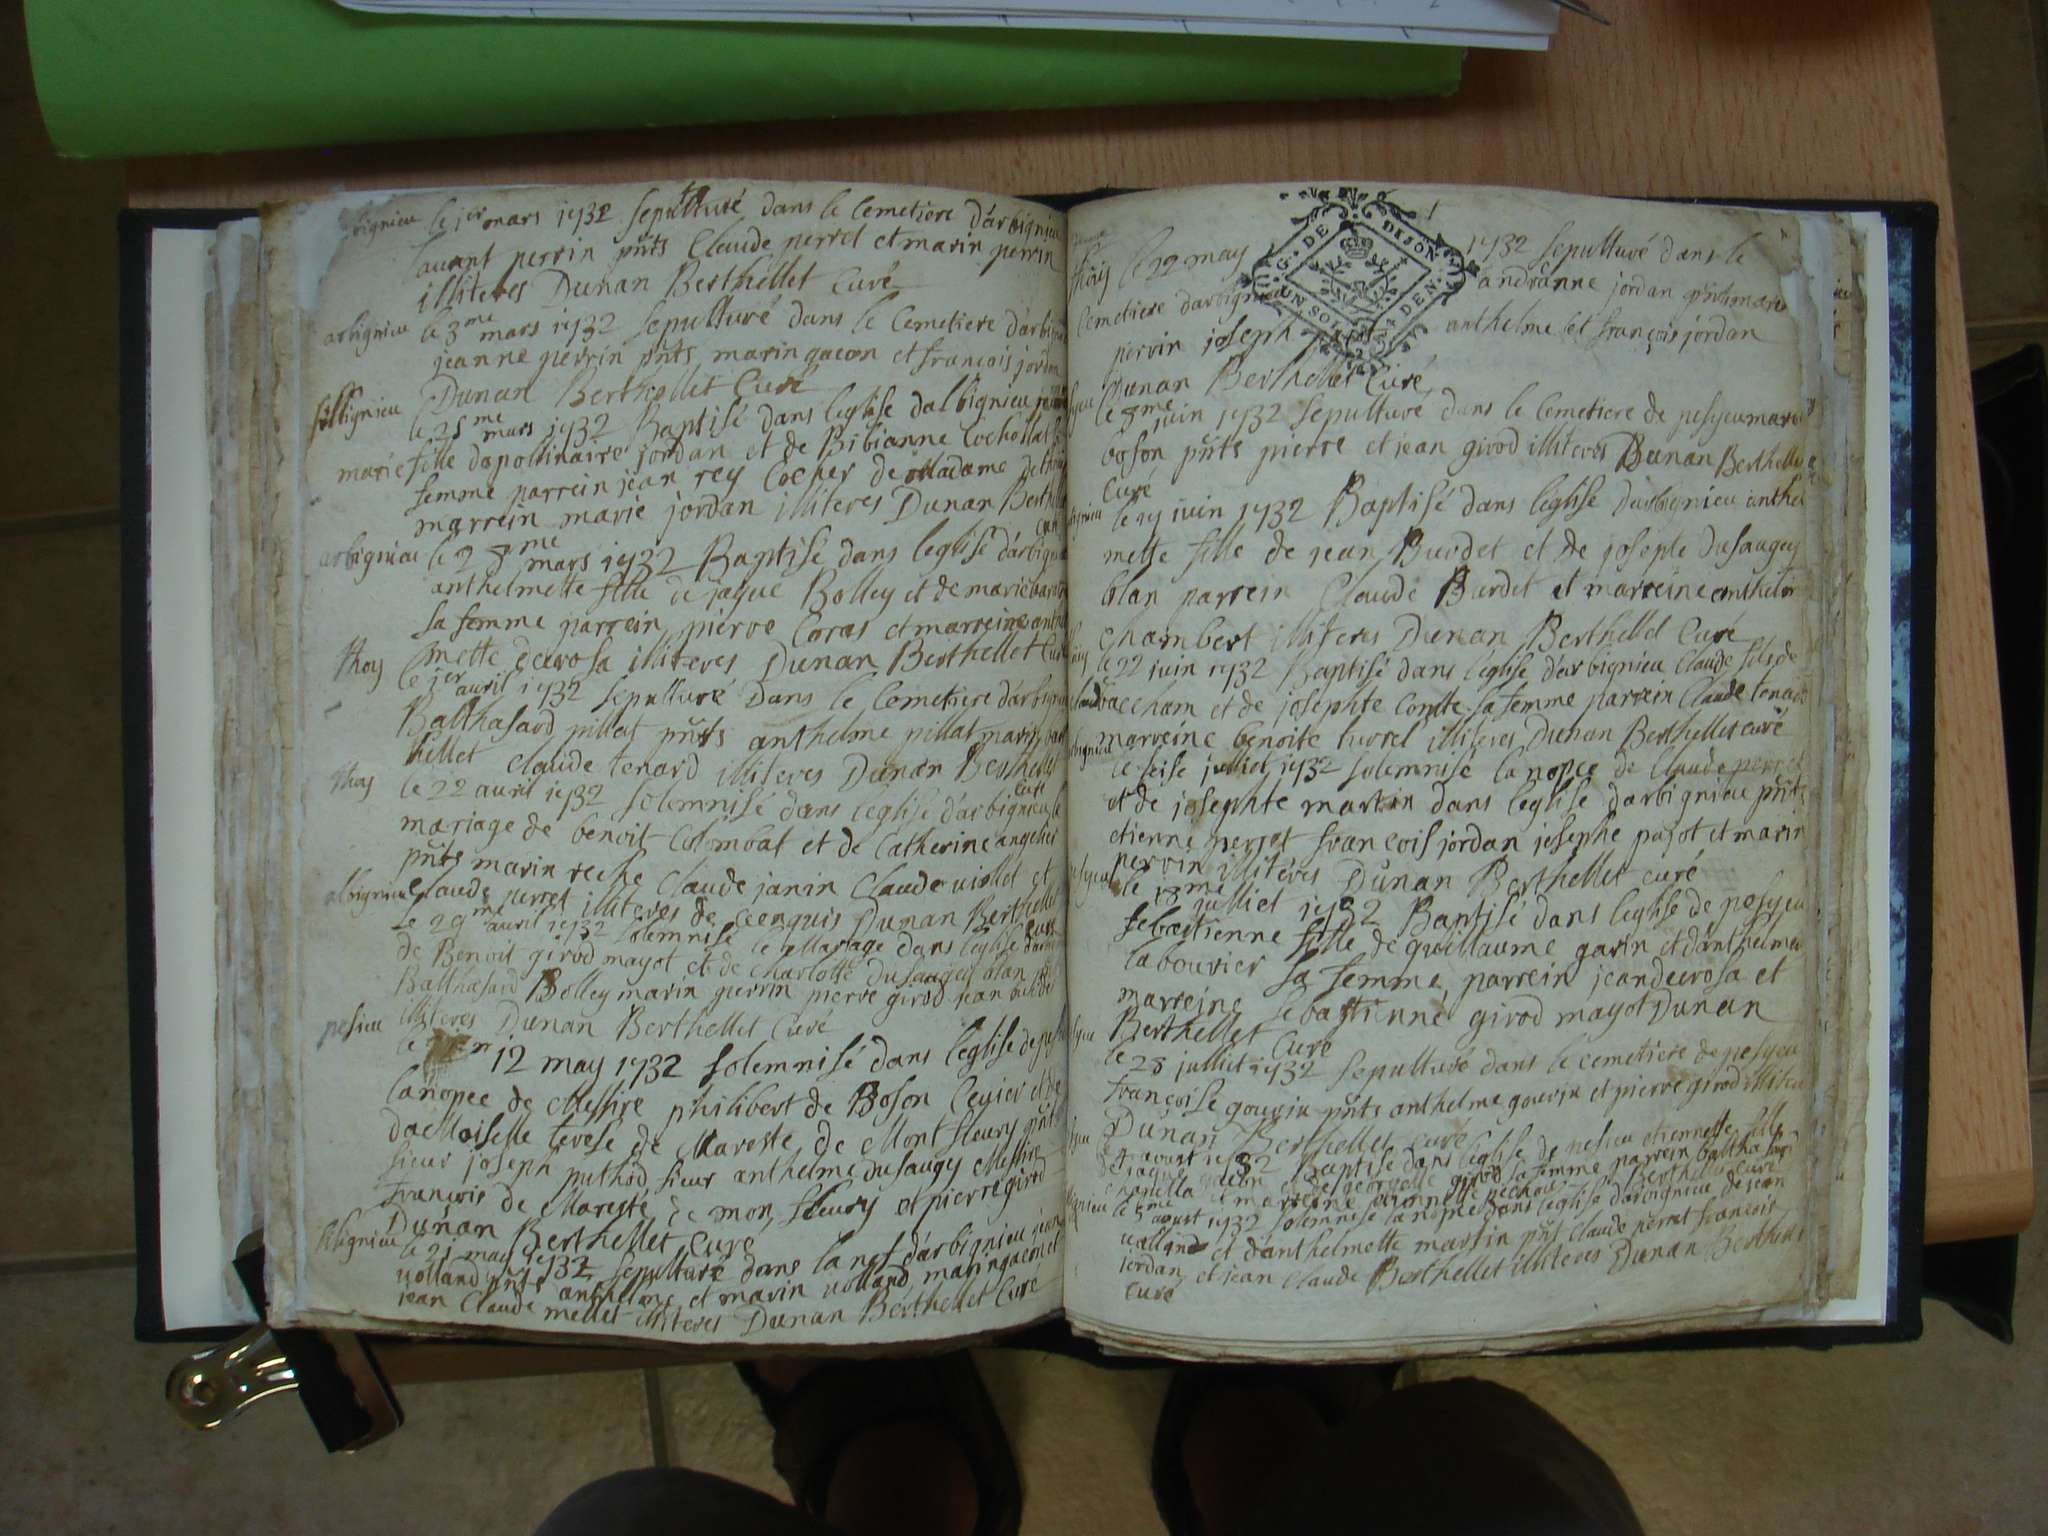 le jer mars 1732 sepulturé dans le Cemetiere d'arbignieu
laurant perrin pnts Claude perret et marin perrin
illiteres Dunan Berthellet Curé
arbignieu le 3me mars 1732 sepulturé dans le Cemetiere d'arbignieu
jeanne perrin pnts marin gacon et francois jordan
Dunan Berthellet Curé
le 25me mars 1732 Baptisé dans leglise dalbignieu
marie fille dapollinaire jordan et de Bibianne
femme parrein jean rey Cocher de Madame de
marrein marie jordan illiteres Dunan Berthellet
curé
arbignieu le 28me mars 1732 Baptisé dans leglise d'arbignieu
anthelmette fille de jaque Bolley et de marie
sa femme parrein pierre Caras et marreine anthel
mette decrosa illiteres Dunan Berthellet Curé
thoy le jer avril 1732 sepulturé dans le Cemetiere d'arbignieu
Balthasard pillat pnts anthelme pillat marin ber
hellet claude tenard illiteres Dunan Berthellet
curé
thoy le 22 avril 1732 solemnisé dans leglise d'arbignieu le
mariage de benoit Colombat et de Catherine angelier
pnts marin reche Claude janin Claude viollet et
albignieu claude perret illiteres de ce enquis Dunan Berthellet
curé
le 29me avril 1732 solemnisé le Mariage dans leglise
de Benoit girod mayot et de charlotte dusaugey blan pnts
Balthasard Bolley marin perrin pierre girod jean
illiteres Dunan Berthellet Curé
pesieu le 12 may 1732 solemnisé dans leglise de
la nopce de Messire philibert de Boson Ceyier et de
daMoiselle terese de Mareste de Mont fleury pnts
sieur joseph puthod sieur anthelme dusaugey Messire
francois de Mareste de mon fleury et pierre girod
Dunan Berthellet Curé
le 21 may 1732 sepulturé dans la nef d'arbignieu jean
volland pnts anthelme et marin volland marin gacon et
jean Claude mellet illiteres Dunan Berthellet Curé
G. DE DIJON
UN SOL DEN.
thoy le 22 may 1732 sepulturé dans le
Cemetiere darbignieu andréanne jordan pnts marin
perrin joseph anthelme et françois jordan
Dunan Berthellet Curé
le 8me juin 1732 sepulturé dans le Cemetiere de pesyeu
boson pnts pierre et jean girod illiteres Dunan Berthellet
Curé
le 19 juin 1732 Baptisé dans leglise darbignieu anthel
mette fille de jean Burdet et de josepte dusaugey
blan parrein Claude Burdet et marreine
chambert illiteres Dunan Berthellet Curé
le 22 juin 1732 Baptisé dans leglise d'arbignieu Claude fils de
et de josephte Comte sa femme parrein Claude tenard
marreine benoite hurrel illiteres Dunan Berthellet curé
le seise julliet 1732 solemnisé la nopce de Claude perret
et de josephte martin dans leglise darbignieu pnts
etienne perret francois jordan josephe pajot et marin
perrin illitéres Dunan Berthellet curé
le 18me julliet 1732 Baptisé dans leglise de pesyeu
sebastienne fille de guillaume garin et danthelme
labouvier sa femme, parrein jean decrosa et
marreine sebastienne girod mayot Dunan
Berthellet Curé
le 28 julliet 1732 sepulturé dans le cemetiere de pesyeu
françoise gouvin pnts anthelme gouvin et pierre girod
Dunan Berthellet curé
aoust 1732 Baptisé dans leglise de pesieu etiennette fille
de jaque et de girod sa femme parrein
chapella et marreine Berthellet curé
le 5me aoust 1732 solemnise la nopce dans leglise darbignieu de jean
volland et danthelmette martin pnts Claude perret francois
jordan et jean claude Berthellet illiteres Dunan Berthellet
curé